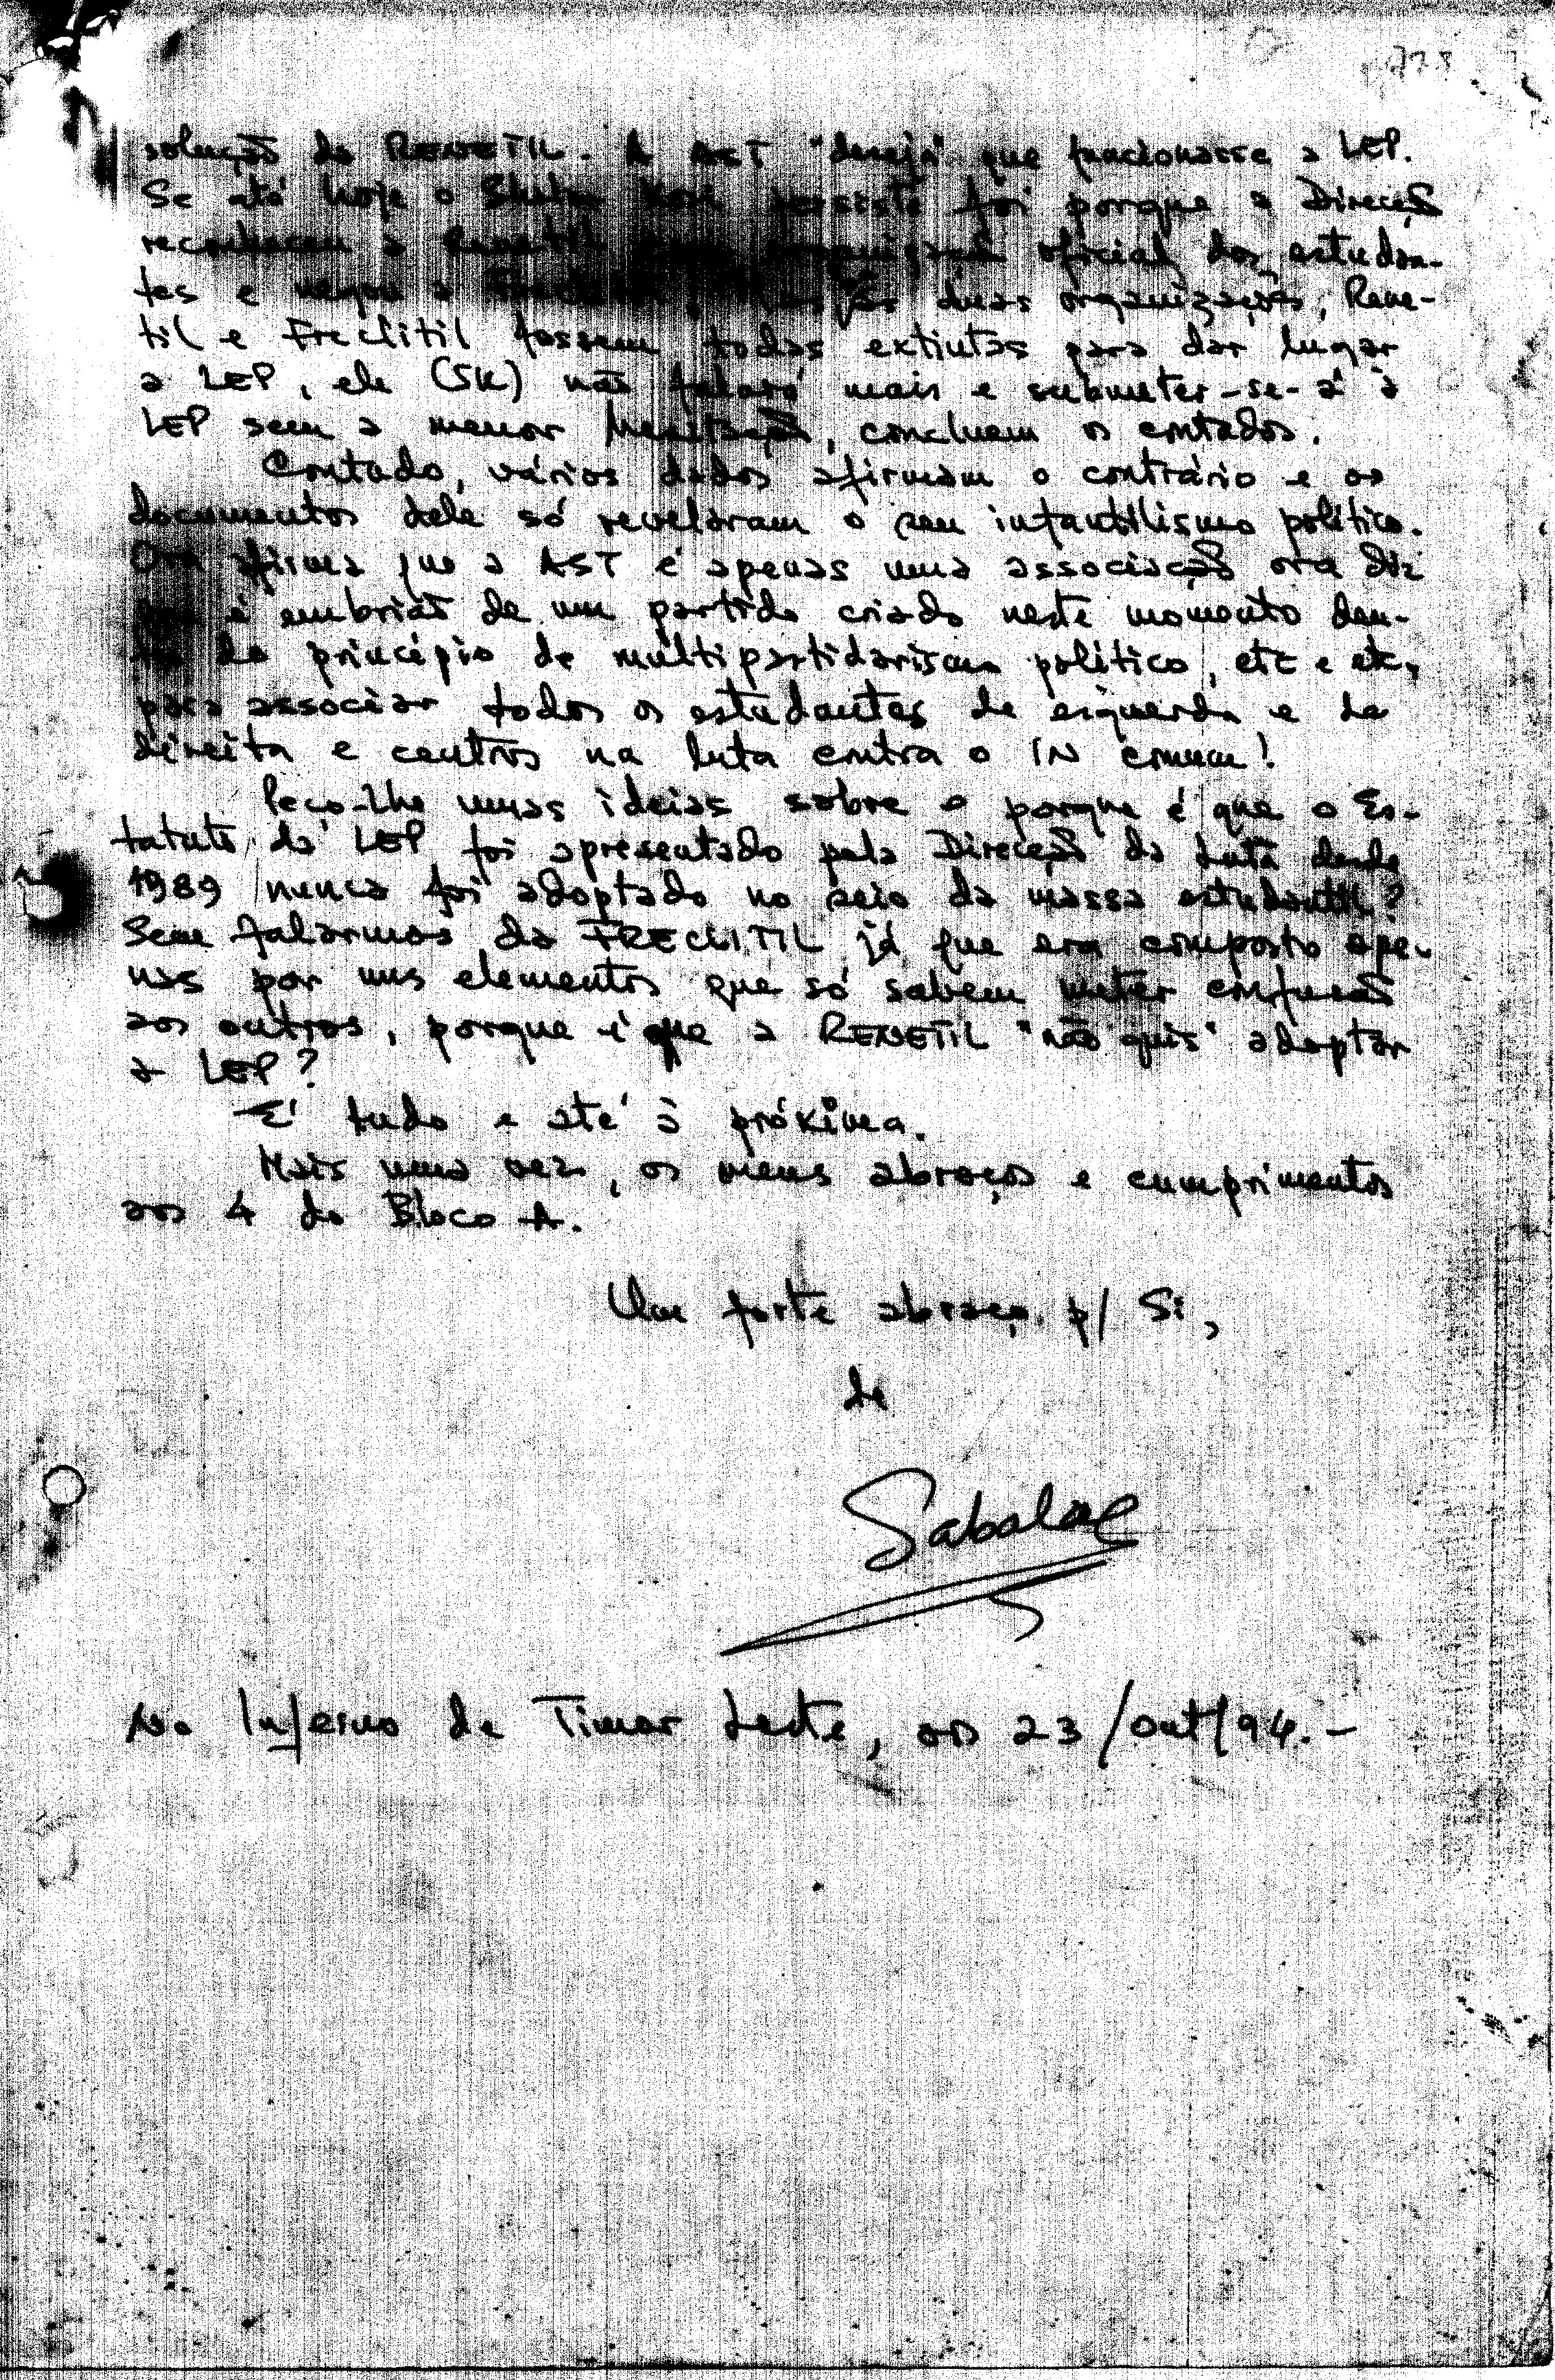 solução da RENETIL. A AST "deseja" que funcionasse a LEP.
Se até hoje o persiste foi porque a Direcção
reconheceu a Renetil como organização oficial dos estudan-
tes e negou a as duas organizações, Rene-
til e Freclitil fossem todas extintas para dar lugar
a LEP, ele (SK) não falará mais e submeter-se-á à
LEP sem a menor hesitação, concluem os contados.
Contudo, vários dados afirmam o contrário e os
documentos dele só revelaram o seu infantilismo político.
Ora afirma que a AST é apenas uma associação ora diz
que é embrião de um partido criado neste momento den-
tro do princípio de multipartidarismo político, etc e etc,
para associar todos os estudantes de esquerda e da
direita e centros na luta contra o IN comum!
Peço-lhe umas ideias sobre o porque é que o Es-
tatuto da LEP foi apresentado pela Direcção da Luta desde
1989 nunca foi adoptado no seio da massa estudantil?
Sem falarmos da FRECLITIL já que era composto ape-
nas por uns elementos que só sabem meter confusão
aos outros, porque é que a RENETIL "não quis" adoptar
a LEP?
É tudo e até à próxima.
Mais uma vez, os meus abraços e cumprimentos
aos 4 do Bloco A.
Um forte abraço p/ Si,
de
Sabalae
No Inferno de Timor Leste, aos 23/Out/94.-